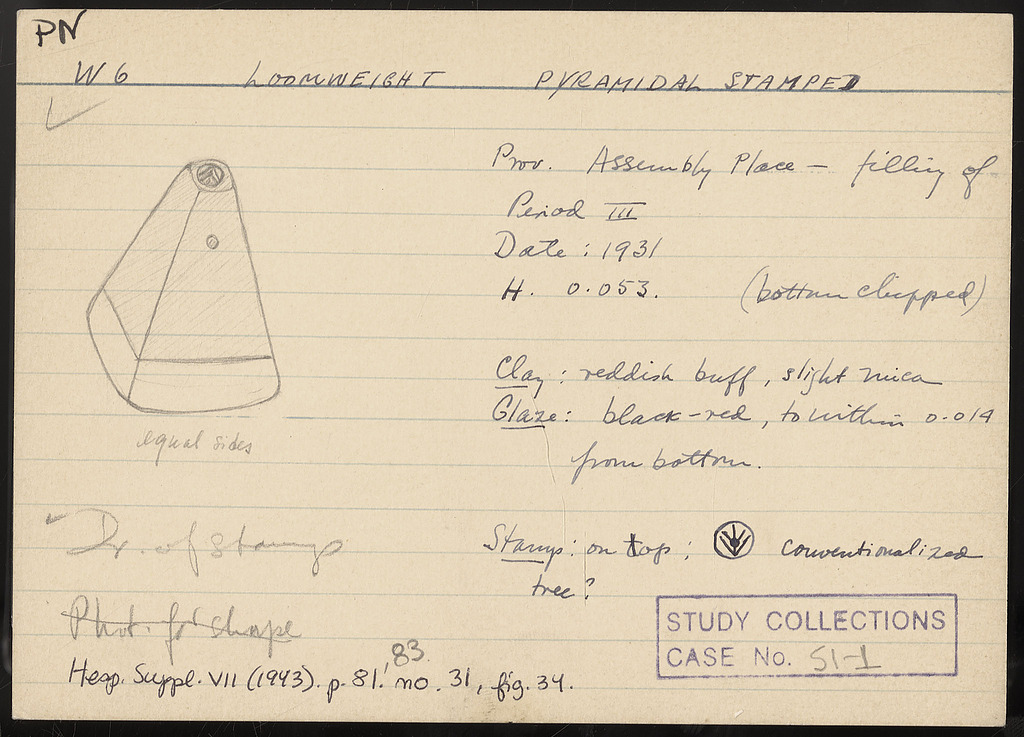 PN
W 6 LOOMWEIGHT PYRAMIDAL STAMPED
Prov. Assembly Place – filling of
Period III
Date : 1931
H. 0.053. (bottom chipped)
Clay : reddish buff, slight mica
Glaze : black-red, to within 0.014
from bottom.
equal sides
Dr. of stamp
Stamp : on top ; conventionalized
tree?
Phot. for shape
Hesp. Suppl. VII (1943). p. 81, 83. no. 31, fig. 34.
STUDY COLLECTIONS
CASE No. S1-1